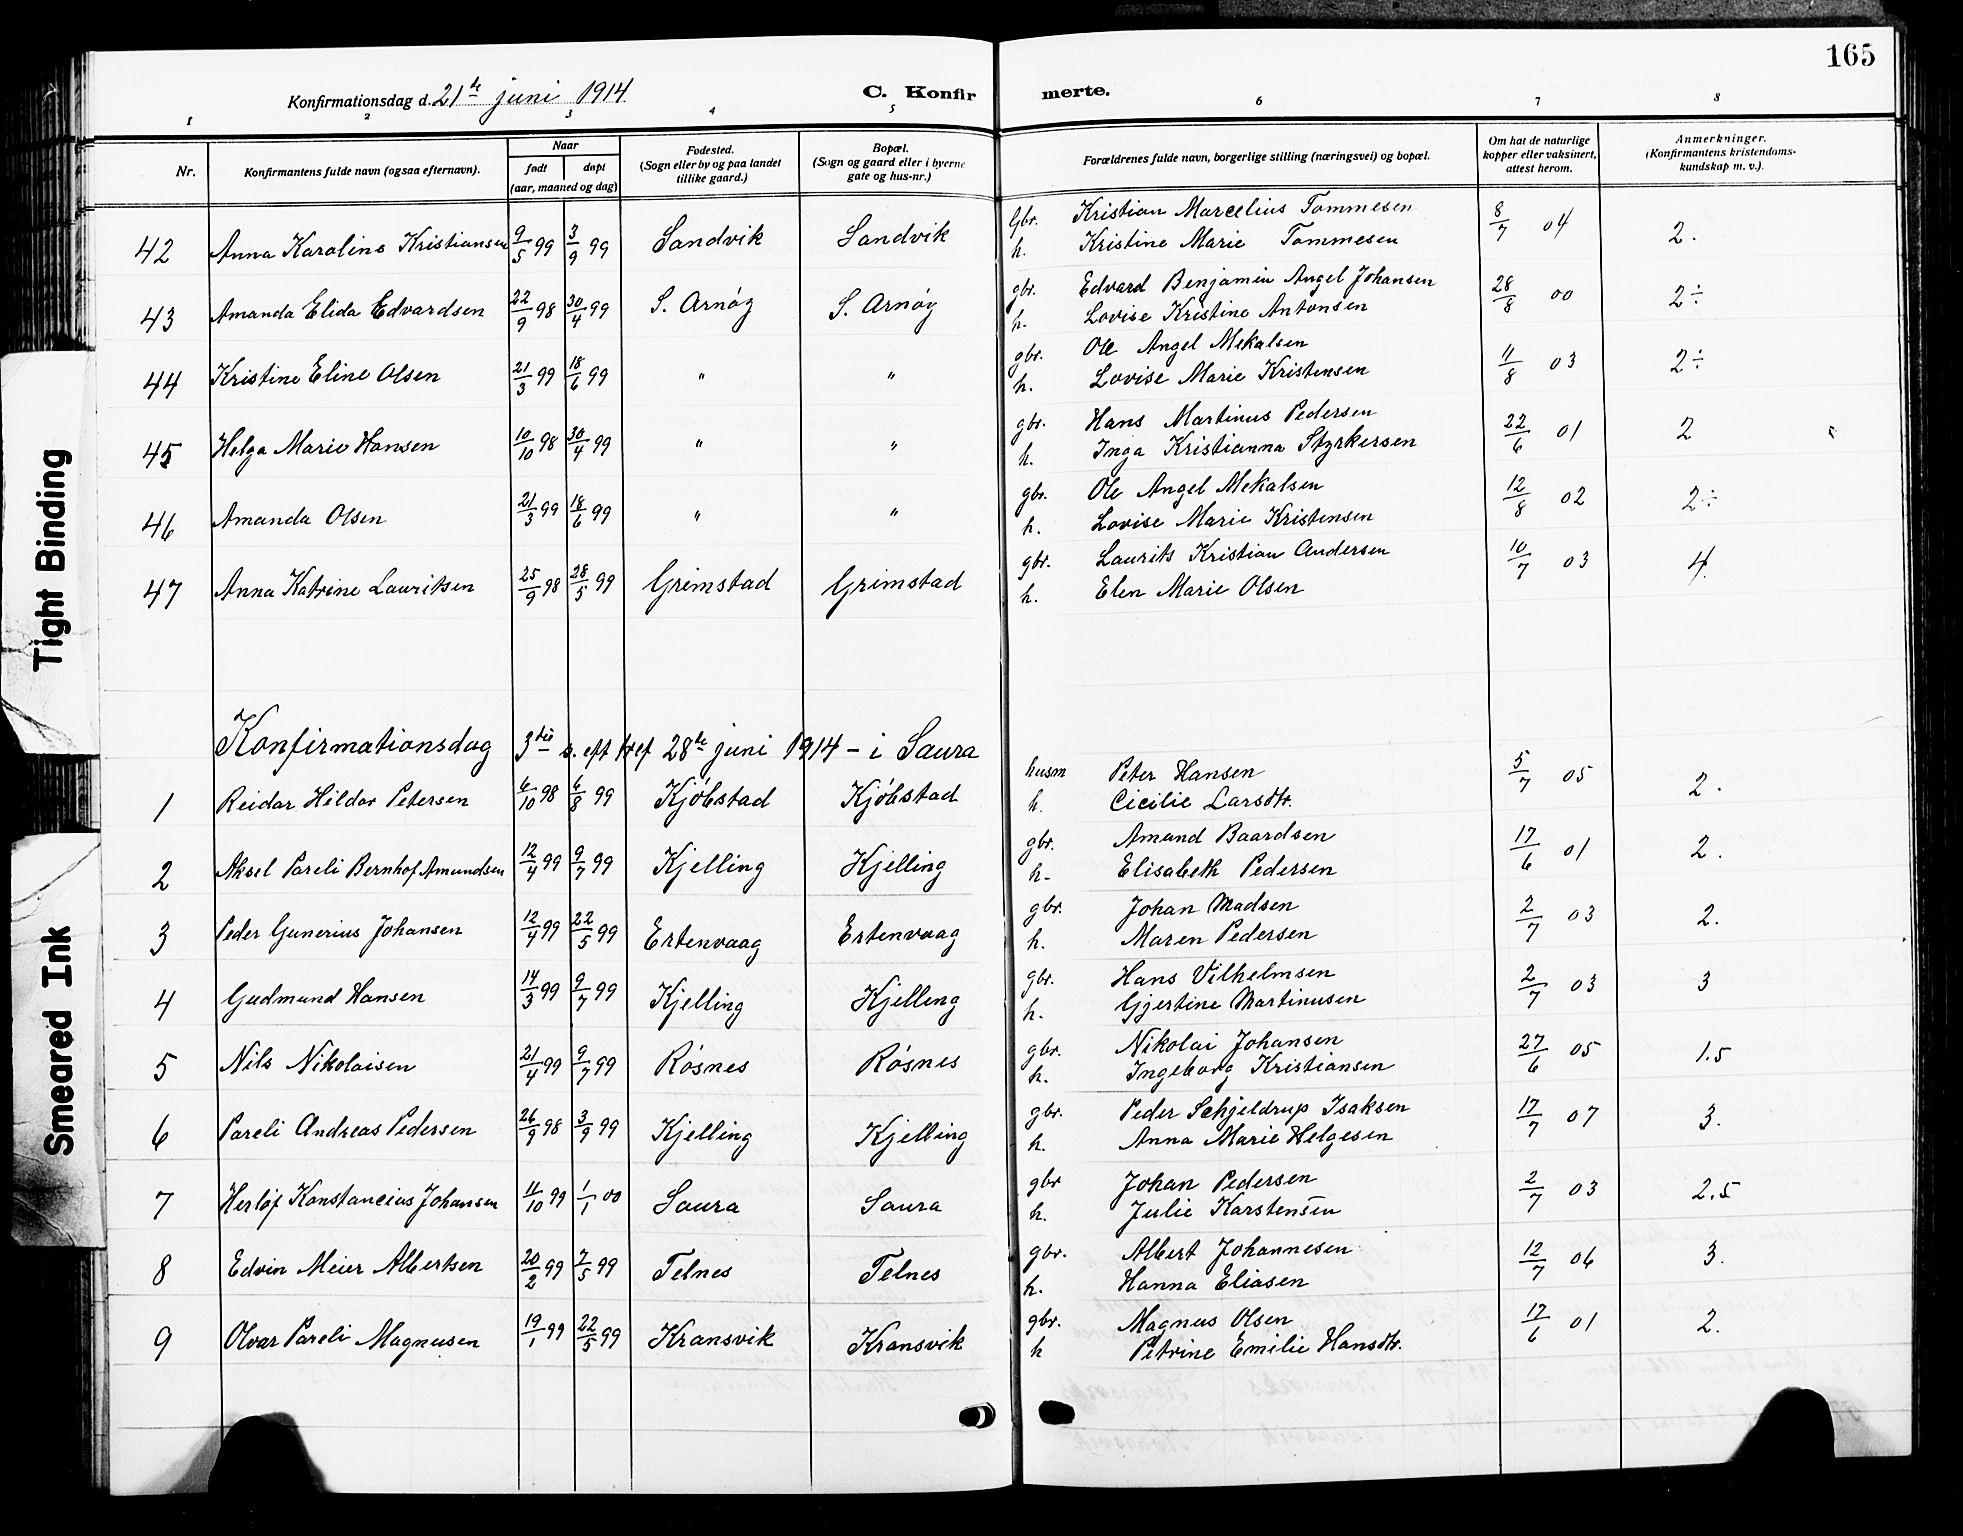 165
Konfirmationsdag d. 21de juni 1914
C. Konfirmerte.
1 2 3 4 5 6 7 8
Nr. | Konfirmantens fulde navn (ogsaa efternavn). | Naar født døpt (aar, maaned og dag) | Fødested. (Sogn eller by og paa landet tillike gaard.) | Bopæl. (Sogn og gaard eller i byerne gate og hus-nr.) | Forældrenes fulde navn, borgerlige stilling (næringsvei) og bopæl. | Om hat de naturlige kopper eller vaksinert, attest herom. | Anmerkninger. (Konfirmantens kristendomskundskap m. v.).
42 Anna Karoline Kristiansen 9/5 99 3/9 99 Sandvik Sandvik Gbr. Kristian Marcelius Tommesen 8/7 04 2.
h. Kristine Marie Tommesen
43 Amanda Elida Edvardsen 22/9 98 30/4 99 S. Arnøy S. Arnøy gbr. Edvard Benjamin Angel Johansen 28/8 00 2÷
h. Lovise Kristine Antonsen
44 Kristine Eline Olsen 21/3 99 18/6 99 " " gbr. Ole Angel Mekalsen 11/8 03 2÷
h. Lovise Marie Kristensen
45 Helga Marie Hansen 10/10 98 30/4 99 " " gbr. Hans Martinus Pedersen 22/6 01 2
h. Inga Kristianna Styrkersen
46 Amanda Olsen 21/3 99 18/6 99 " " gbr. Ole Angel Mekalsen 12/8 02 2÷
h. Lovise Marie Kristensen
47 Anna Katrine Lauritsen 25/9 98 28/5 99 Grimstad Grimstad gbr. Laurits Kristian Andersen 10/7 03 4.
h. Elen Marie Olsen
Konfirmationsdag 3die s. eft tref 28de juni 1914 – i Saura
1 Reidar Hildor Petersen 6/10 98 6/8 99 Kjøbstad Kjøbstad husm Peter Hansen 5/7 05 2.
h. Cicilie Larsdtr.
2 Aksel Pareli Bernhof Amundsen 12/4 99 9/7 99 Kjelling Kjelling gbr. Amund Baardsen 17/6 01 2.
h. Elisabeth Pedersen
3 Peder Gunerius Johansen 12/4 99 22/5 99 Ertenvaag Ertenvaag gbr. Johan Madsen 2/7 03 2.
h. Maren Pedersen
4 Gudmund Hansen 14/3 99 9/7 99 Kjelling Kjelling gbr. Hans Vilhelmsen 2/7 03 3
h. Gjertine Martinusen
5 Nils Nikolaisen 21/4 99 9/7 99 Røsnes Røsnes gbr. Nikolai Johansen 27/6 05 1.5
h. Ingeborg Kristiansen
6 Pareli Andreas Pedersen 26/9 98 3/9 99 Kjelling Kjelling gbr. Peder Schjeldrup Isaksen 17/7 07 3.
h. Anna Marie Helgesen
7 Herløf Konstancius Johansen 11/10 99 1/1 00 Saura Saura gbr Johan Pedersen 2/7 03 2.5
h. Julie Karstensen
8 Edvin Meier Albertsen 20/2 99 7/5 99 Telnes Telnes gbr. Albert Johannesen 12/7 06 3.
h. Hanna Eliasen
9 Olvar Pareli Magnusen 19/1 99 22/5 99 Kransvik Kransvik gbr. Magnus Olsen 17/6 01 2.
h Petrine Emilie Hansdtr.
Tight Binding
Smeared Ink